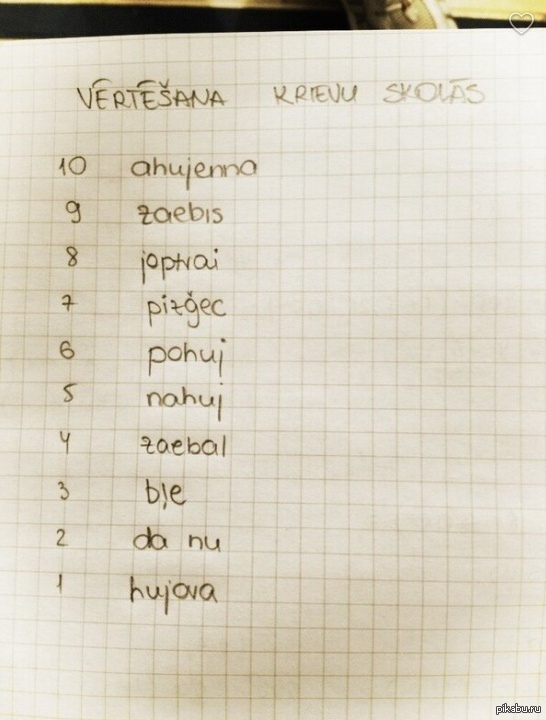 VĒRTĒŠANA KRIEVU SKOLĀS
10 ahujenna
9 zaebis
8 joptvai
7 pizģec
6 pohuj
5 nahuj
4 zaebal
3 bļe
2 da nu
1 hujova
pikabu.ru